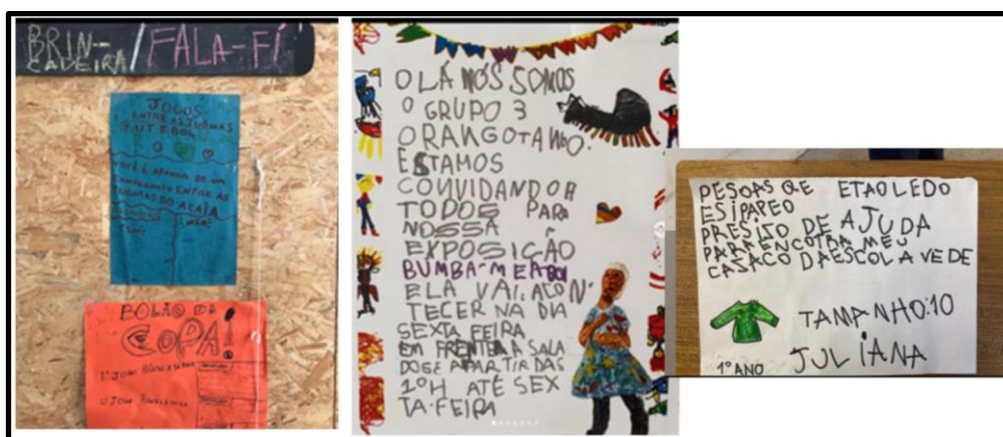 BRIN-
CADEIRA / FALA-FÍ
JOGOS
ENTRE AS TURMAS
FUTEBOL
VOCÊ É DE UM
CAMPEONATO ENTRE AS
TURMAS DO ACAIA
BOLÃO DA
COPA!
1º JOGO
OLÁ NÓS SOMOS
O GRUPO 3
ORANGOTANO.
ESTAMOS
CONVIDANDO A
TODOS PARA
NOSSA
EXPOSIÇÃO
BUMBA-MEABOI
ELA VAI ACON
TECER NA DIA
SEXTA FEIRA
EM FRENTE A SALA
DOGE APARTIR DAS
10H ATÉ SEX
TA-FEIRA
PESOAS QE ETAOLEDO
ESIPAPEO
PRESIZO DE AJUDA
PARA ENCOTRA MEU
CASACO DAESCOLA VEDE
TAMANHO:10
1º ANO JULIANA